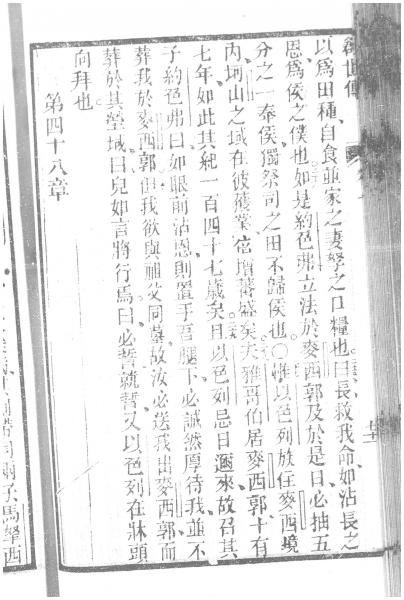 創世傳
以爲田種、自食並家之妻孥之口糧也曰長救我命如沾長之
恩爲侯之僕也如是約色弗立法於麥西郭及於是日必抽五
分之一奉侯獨祭司之田不歸侯也〇惟以色列族住麥西境
内坷山之域在彼獲業當增蕃盛矣夫雅哥伯居麥西郭十有
七年如此其紀一百四十七歲矣且以色列忌日邇來故召其
子約色弗曰如眼前沾恩則置手吾腿下必誠然厚待我並不
葬我於麥西郭但我欲與祖父同墓故汝必送我出麥西郭而
葬於其塋域曰兒如言將行焉曰必誓就誓又以色列在牀頭
向拜也
第四十八章
子馬拏西